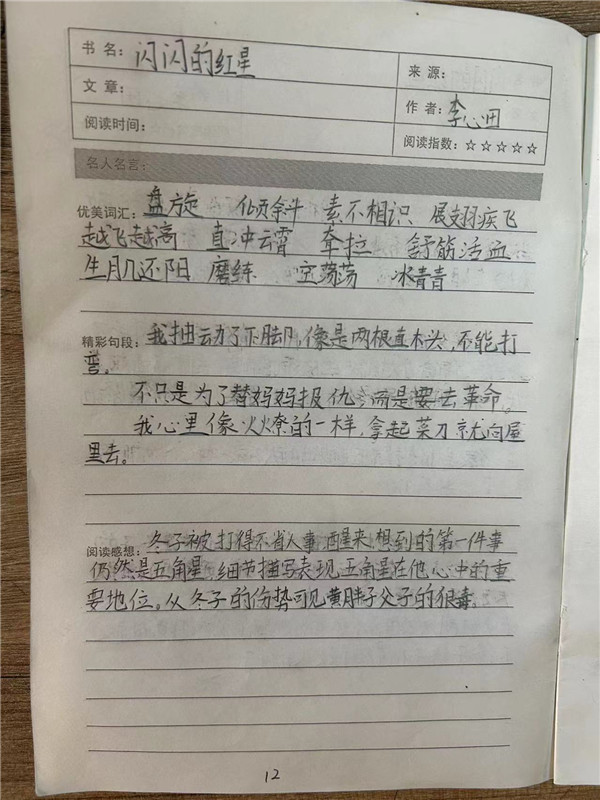 书 名：闪闪的红星
来 源：
文 章：
作 者：李心田
阅读时间：
阅读指数：☆☆☆☆☆
名人名言：
优美词汇：盘旋 倾斜 素不相识 展翅疾飞
越飞越高 直冲云霄 牵拉 舒筋活血
生肌还阳 磨练 空荡荡 冰青青
精彩句段：我抽动了下脚，像是两根直木头，不能打
弯。
不只是为了替妈妈报仇，而是要去革命。
我心里像火燎的一样，拿起菜刀就向屋
里去。
阅读感想：冬子被打得不省人事 醒来，想到的第一件事
仍然是五角星 细节描写表现五角星在他心中的重
要地位。从冬子的伤势可见黄胖子父子的狠毒。
12